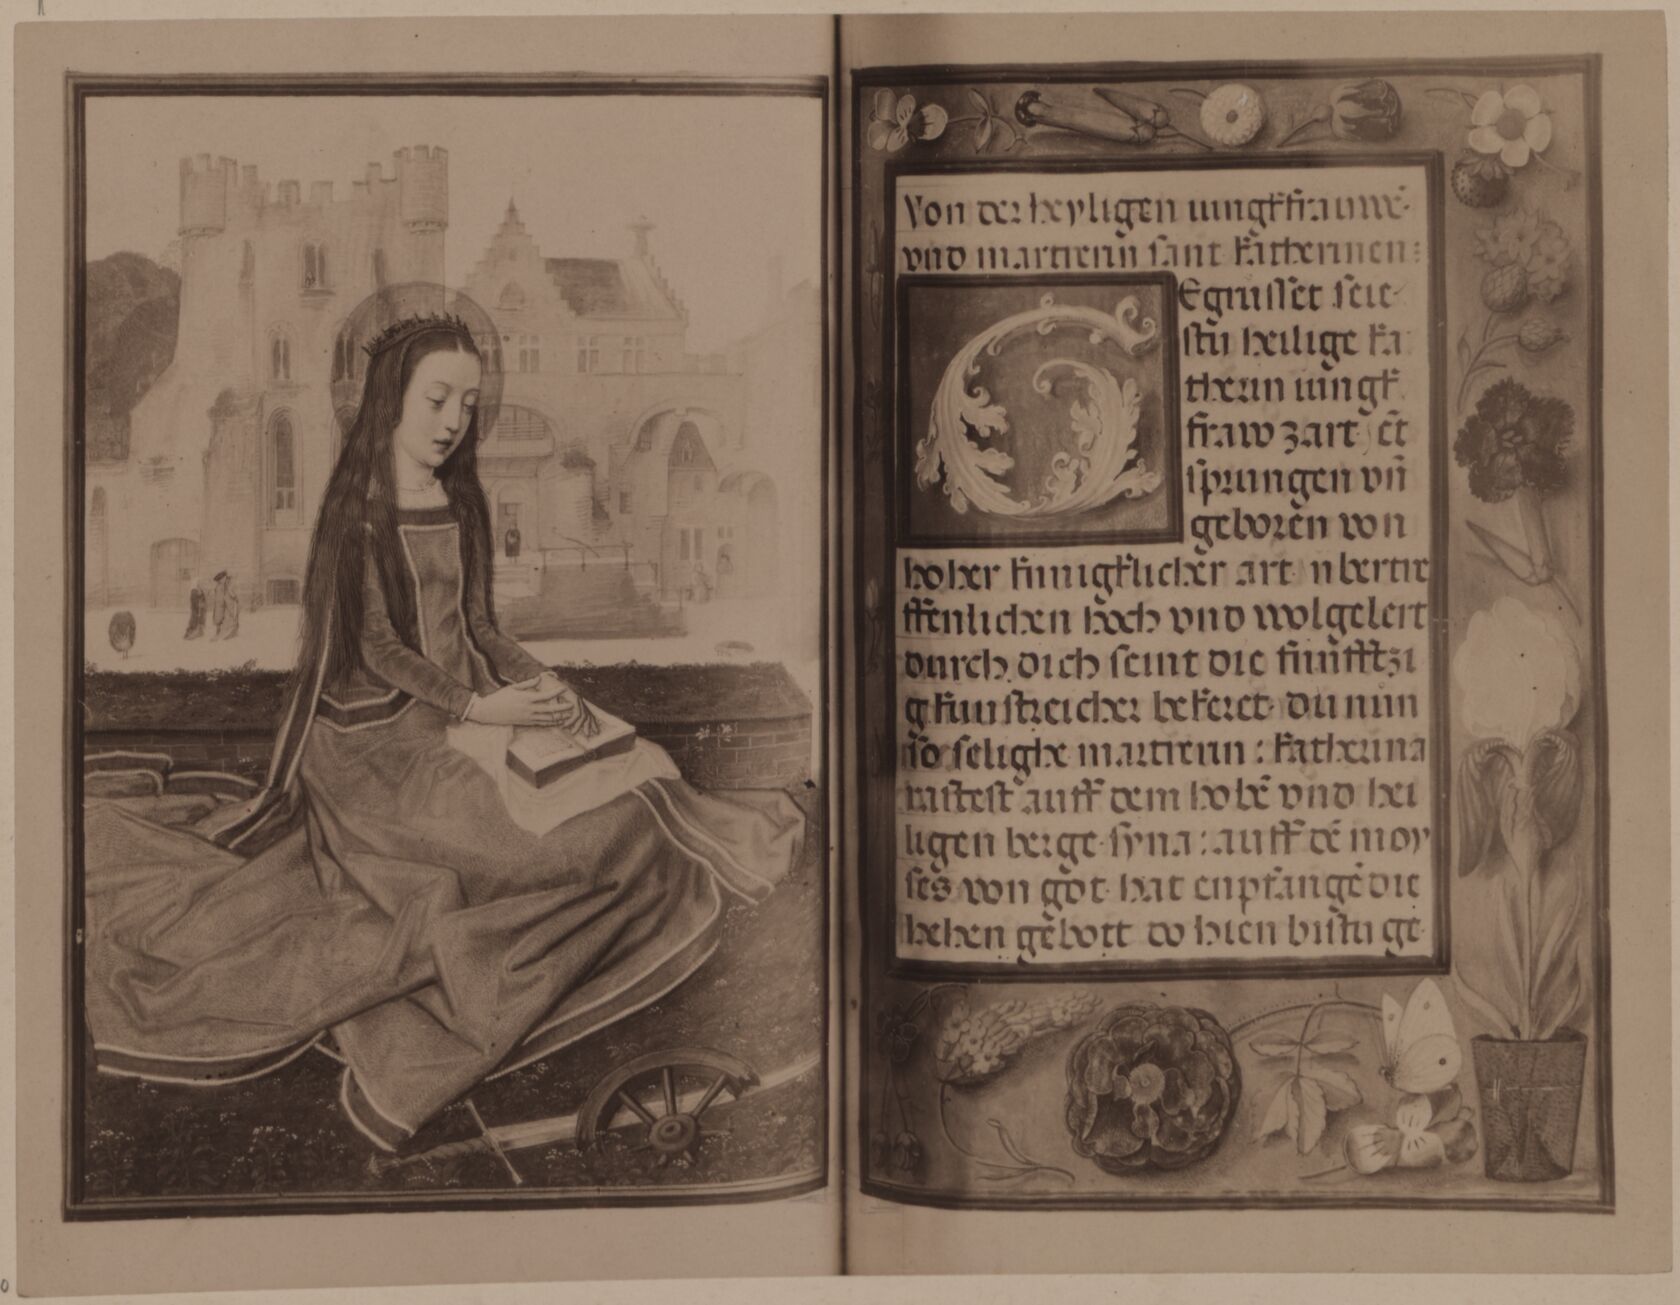 Von der heyligen iungkfrauwē
vnd martrerin sant katherinen:
Egrusset seie
stu heilige ka
therin iungk
fraw zart ēt
sprungen vn̄
geborēn von
hoher kunigklicher art ubertre
ffenlichen hoch vnd wolgelert
durch dich seint die funfftzi
g kunstreicher bekeret du nun
so selighe martrerin: katherina
rastest auff dem hohē vnd hei
ligen berge syna: auff dē moy
ses von got hat enpfangē die
hehen gēbott do hien bistu ge